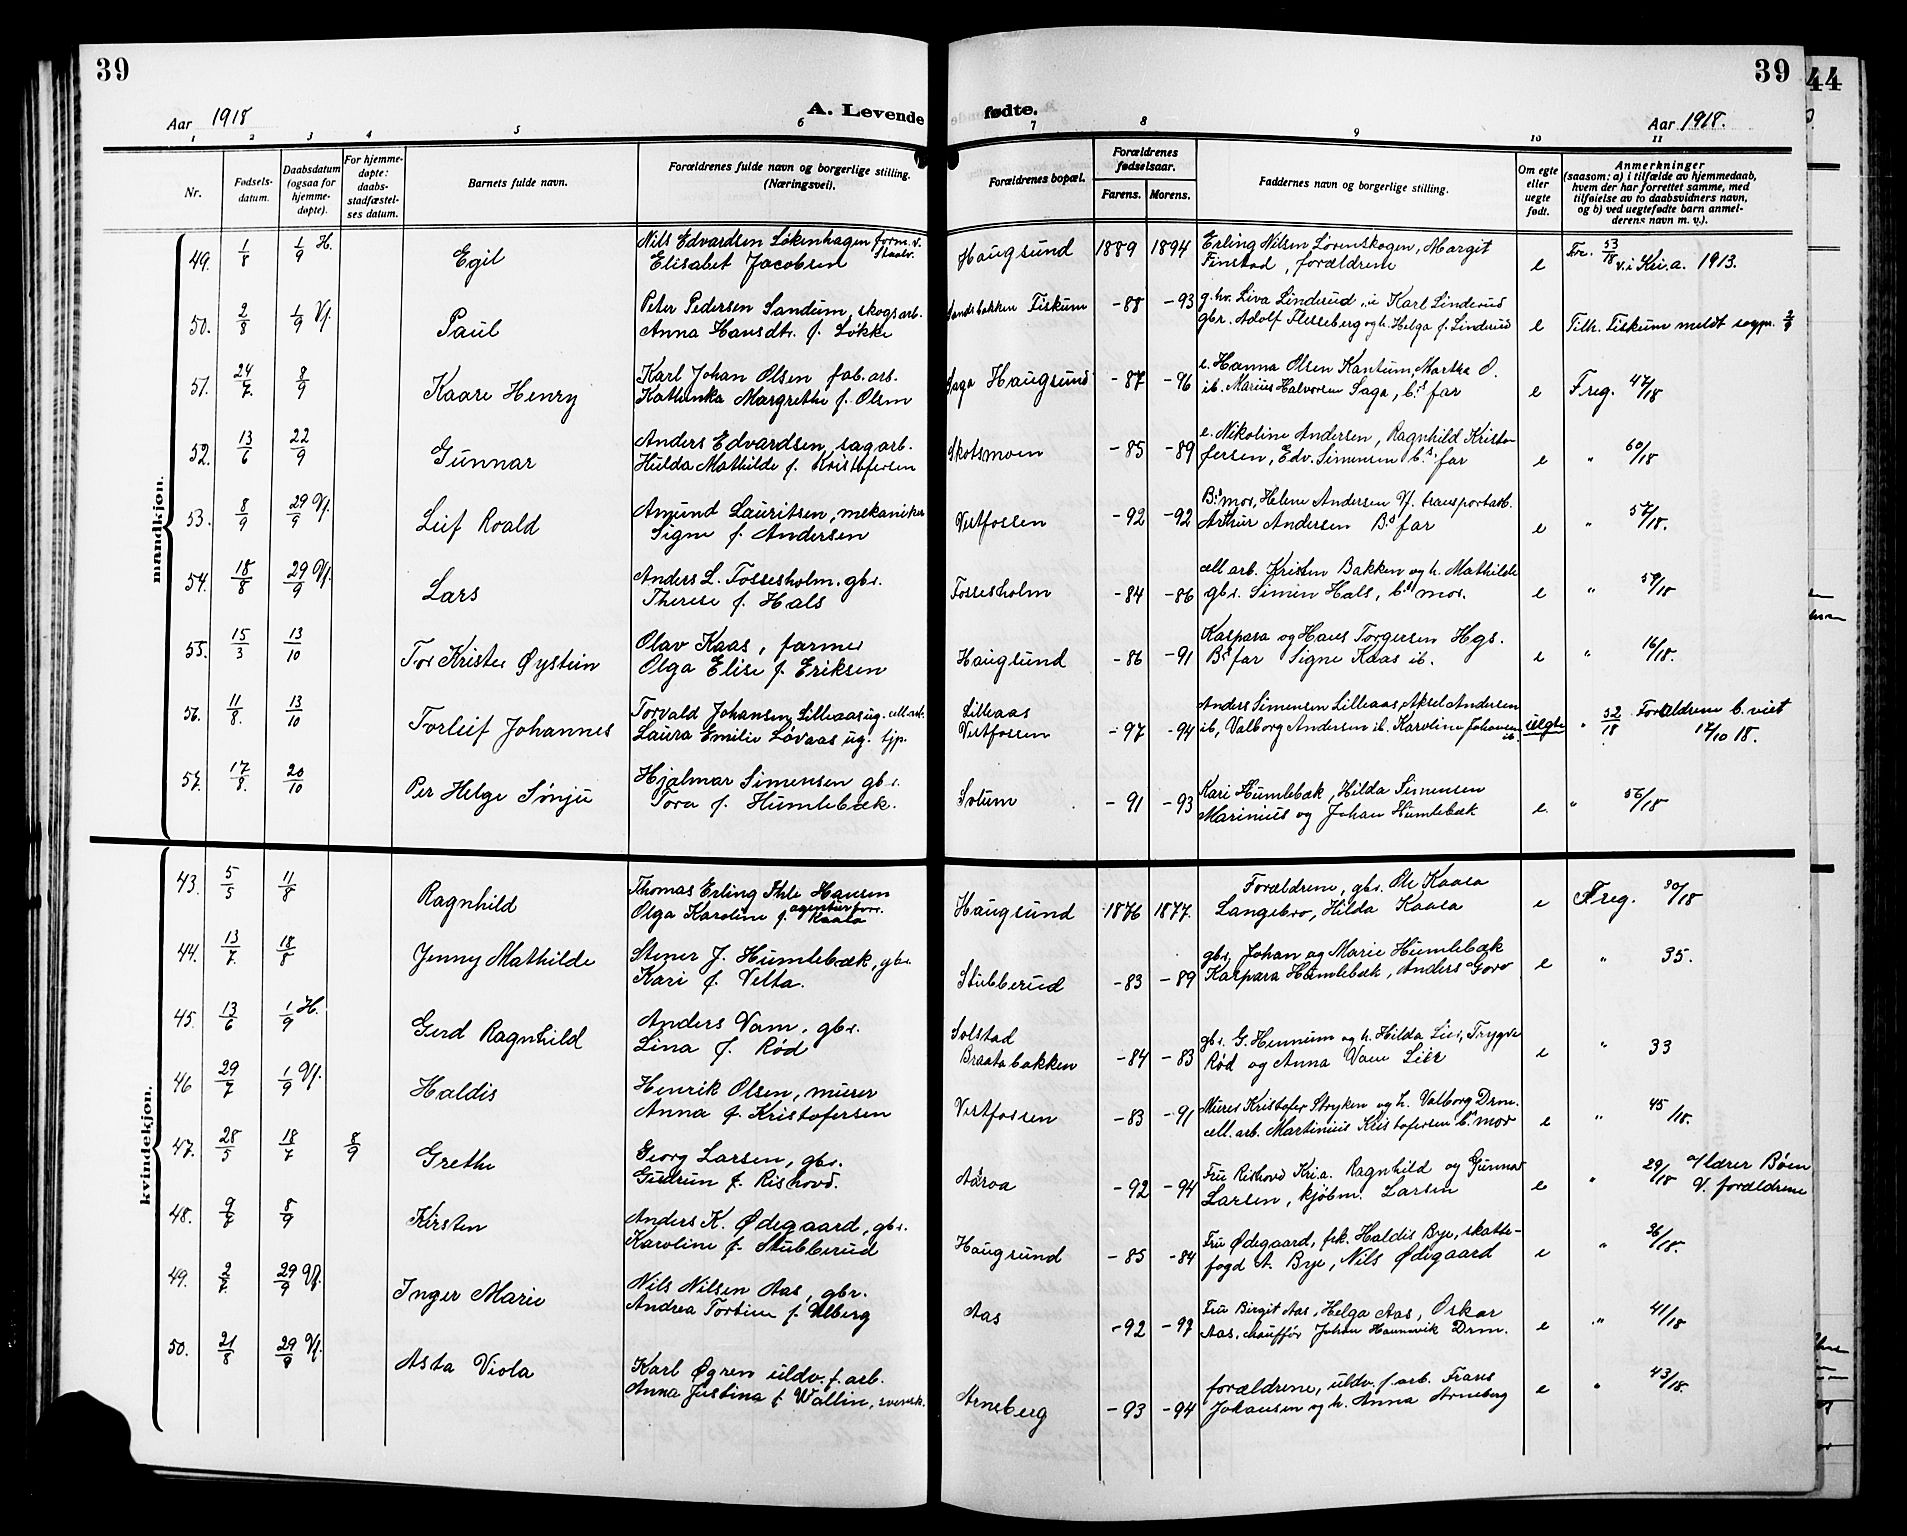 39
39
44
A. Levende
fødte.
Aar 1918
Aar 1918.
1 2 3 4 5 6 7 8 9 10 11
Nr.
Fødsels-
datum.
Daabsdatum
(ogsaa for
hjemme-
døpte).
For hjemme-
døpte:
daabs-
stadfæstel-
ses datum.
Barnets fulde navn.
Forældrenes fulde navn og borgerlige stilling.
(Næringsvei).
Forældrenes bopæl.
Forældrenes
fødselsaar.
Farens. Morens.
Faddernes navn og borgerlige stilling.
Om egte
eller
uegte
født.
Anmerkninger
(saasom: a) i tilfælde av hjemmedaab,
hvem der har forrettet samme, med
tilføielse av to daabsvidners navn,
og b) ved uegtefødte barn anmel-
derens navn m. v.).
mandkjøn.
49. 1/8 1/9 H. Egil
Nils Edvardsen Løkenhagen form. v.
Elisabet Jacobsen
Haugsund 1889 1894
Erling Nilsen Lørenskogen, Margit
Finstad, forældrene
e 53/18 v. i Kri.a. 1913.
50. 2/8 1/9 Vf. Paul
Peter Pedersen Sandum, skogsarb.
Anna Hansdtr. f. Løkke
Sandsbakken Fiskum -88 -93
g.hv. Liva Linderud, Karl Linderud
gbr. Adolf Flesseberg og h. Helga f. Linderud
e Tilh. Fiskum meldt sogpr.
51. 24/7. 8/9 Kaare Henry
Karl Johan Olsen fab. arb.
Kathinka Margrethe f. Olsen
Saga Haugsund -87 -96
e. Hanna Olsen Kantum, Martha O.
ib. Marius Halvorsen Saga, b.s far
e Freg. 47/18
52. 13/6 22/9 Gunnar
Anders Edvardsen, sagarb.
Hulda Mathilde f. Kristofersen
Skotsmoen -85 -89
e. Nikoline Andersen, Ragnhild Kristo-
fersen, Edv. Simensen b.s far
e " 60/18
53. 8/9 29/9 Vf. Leif Roald
Amund Lauritsen, mekaniker
Signe f. Andersen
Vestfossen -92 -92
B.s mor, Helene Andersen Vf. transportarb.
Arthur Andersen B.s far
e " 57/18.
54. 18/8 29/9 Vf. Lars
Anders L. Fossesholm. gbr.
Therese f. Hals
Fossesholm -84 -86
cell. arb. Kristen Bakken og h. Mathilde
gbr. Simen Hals, b.s mor.
e " 59/18
55. 15/3 13/10 Tor Krister Øystein
Olav Kaas, farmer
Olga Elise f. Eriksen
Haugsund -86 -91
Kaspara og Hans Torgersen Hgs.
B.s far Signe Kaas ib.
e " 16/18.
56. 11/8. 13/10 Torleif Johannes
Torvald Johansen Lilleaas ug. cell.arb.
Laura Emilie Løvaas ug. tjp.
Lilleaas
Vestfossen -97 -94
Anders Simensen Lilleaas, Aksel Andersen
ib, Valborg Andersen ib. Karoline Johansen
ib.
uegte " 52/18 Forældrene b. viet
17/10 18.
57. 17/8. 20/10 Per Helge Sønju
Hjalmar Simensen gbr.
Tora f. Humlebæk.
Sotum -91 -93
Kari Humlebæk, Hilda Simensen
Marinius og Johan Humlebæk
e. " 56/18
kvindekjøn.
43. 5/5 11/8 Ragnhild
Thomas Erling Ihle Hansen
Olga Karoline f. Kaasa agenturforr.
Haugsund 1876 1877.
Forældrene, gbr. Ole Kaasa
Langebro, Hilda Kaasa
e Freg. 30/18
44. 13/7. 18/8 Jenny Mathilde
Stener J. Humlebæk, gbr.
Kari f. Velta.
Stubberud -83 -89
gbr. Johan og Marie Humlebæk
Kaspara Humlebæk, Anders Goro
e " 35.
45. 13/6 1/9 H. Gerd Ragnhild
Anders Vam, gbr.
Lina f. Rød
Solstad
Braatabakken -84 -83
gbr. G. Hennum og h. Hilda Lier, Trygve
Rød og Anna Vam Lier
e " 33
46 29/7 1/9 Vf. Haldis
Henrik Olsen, murer
Anna f. Kristofersen
Vestfossen -83 -91
Murer Kristofer Stryken og h. Valborg Drm.
cell. arb. Martinius Kristofersen b.s mor
e " 45/18.
47. 28/5 18/7 8/9 Grethe
Georg Larsen, gbr.
Gudrun f. Rishovd.
Aaroa -92 -94
Fru Rishovd Kri.a. Ragnhild og Gunnar
Larsen, kjøbm. Larsen
e " 29/18 Bøen
V. forældrene
48. 9/7 8/9 Kirsten
Anders K. Ødegaard, gbr.
Karoline f. Stubberud
Haugsund -85 -84
Fru Ødegaard, frk. Haldis Bye, skatte-
fogd A. Bye, Nils Ødegaard
e " 36/18.
49. 2/7. 29/9 Vf. Inger Marie
Nils Nilsen Aas, gbr.
Andrea Torbine f. Ulberg
Aas -92 -97
Fru Birgit Aas, Helga Aas, Oskar
Aas, chauffør Johan Hamnvik Drm.
e " 41/18
50. 21/8 29/9 Vf. Asta Viola
Karl Øgren uldv. f. arb.
Anna Justina f. Wallin, svensk.
Arneberg -93 -94
forældrene, uldv. f. arb. Frans
Johansen og h. Anna Arneberg
e " 43/18.